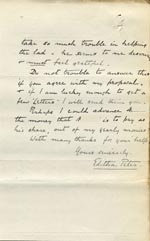 take so much trouble in helping
the lad. He seems to me deserving
& must feel grateful.
Do not trouble to answer this
if you agree with my proposal.
& if I am lucky enough to get a
few letters I will send them you.
Perhaps I could advance
the money that is to pay as
his share, out of my yearly
With many thanks for your help
Yours sincerely.